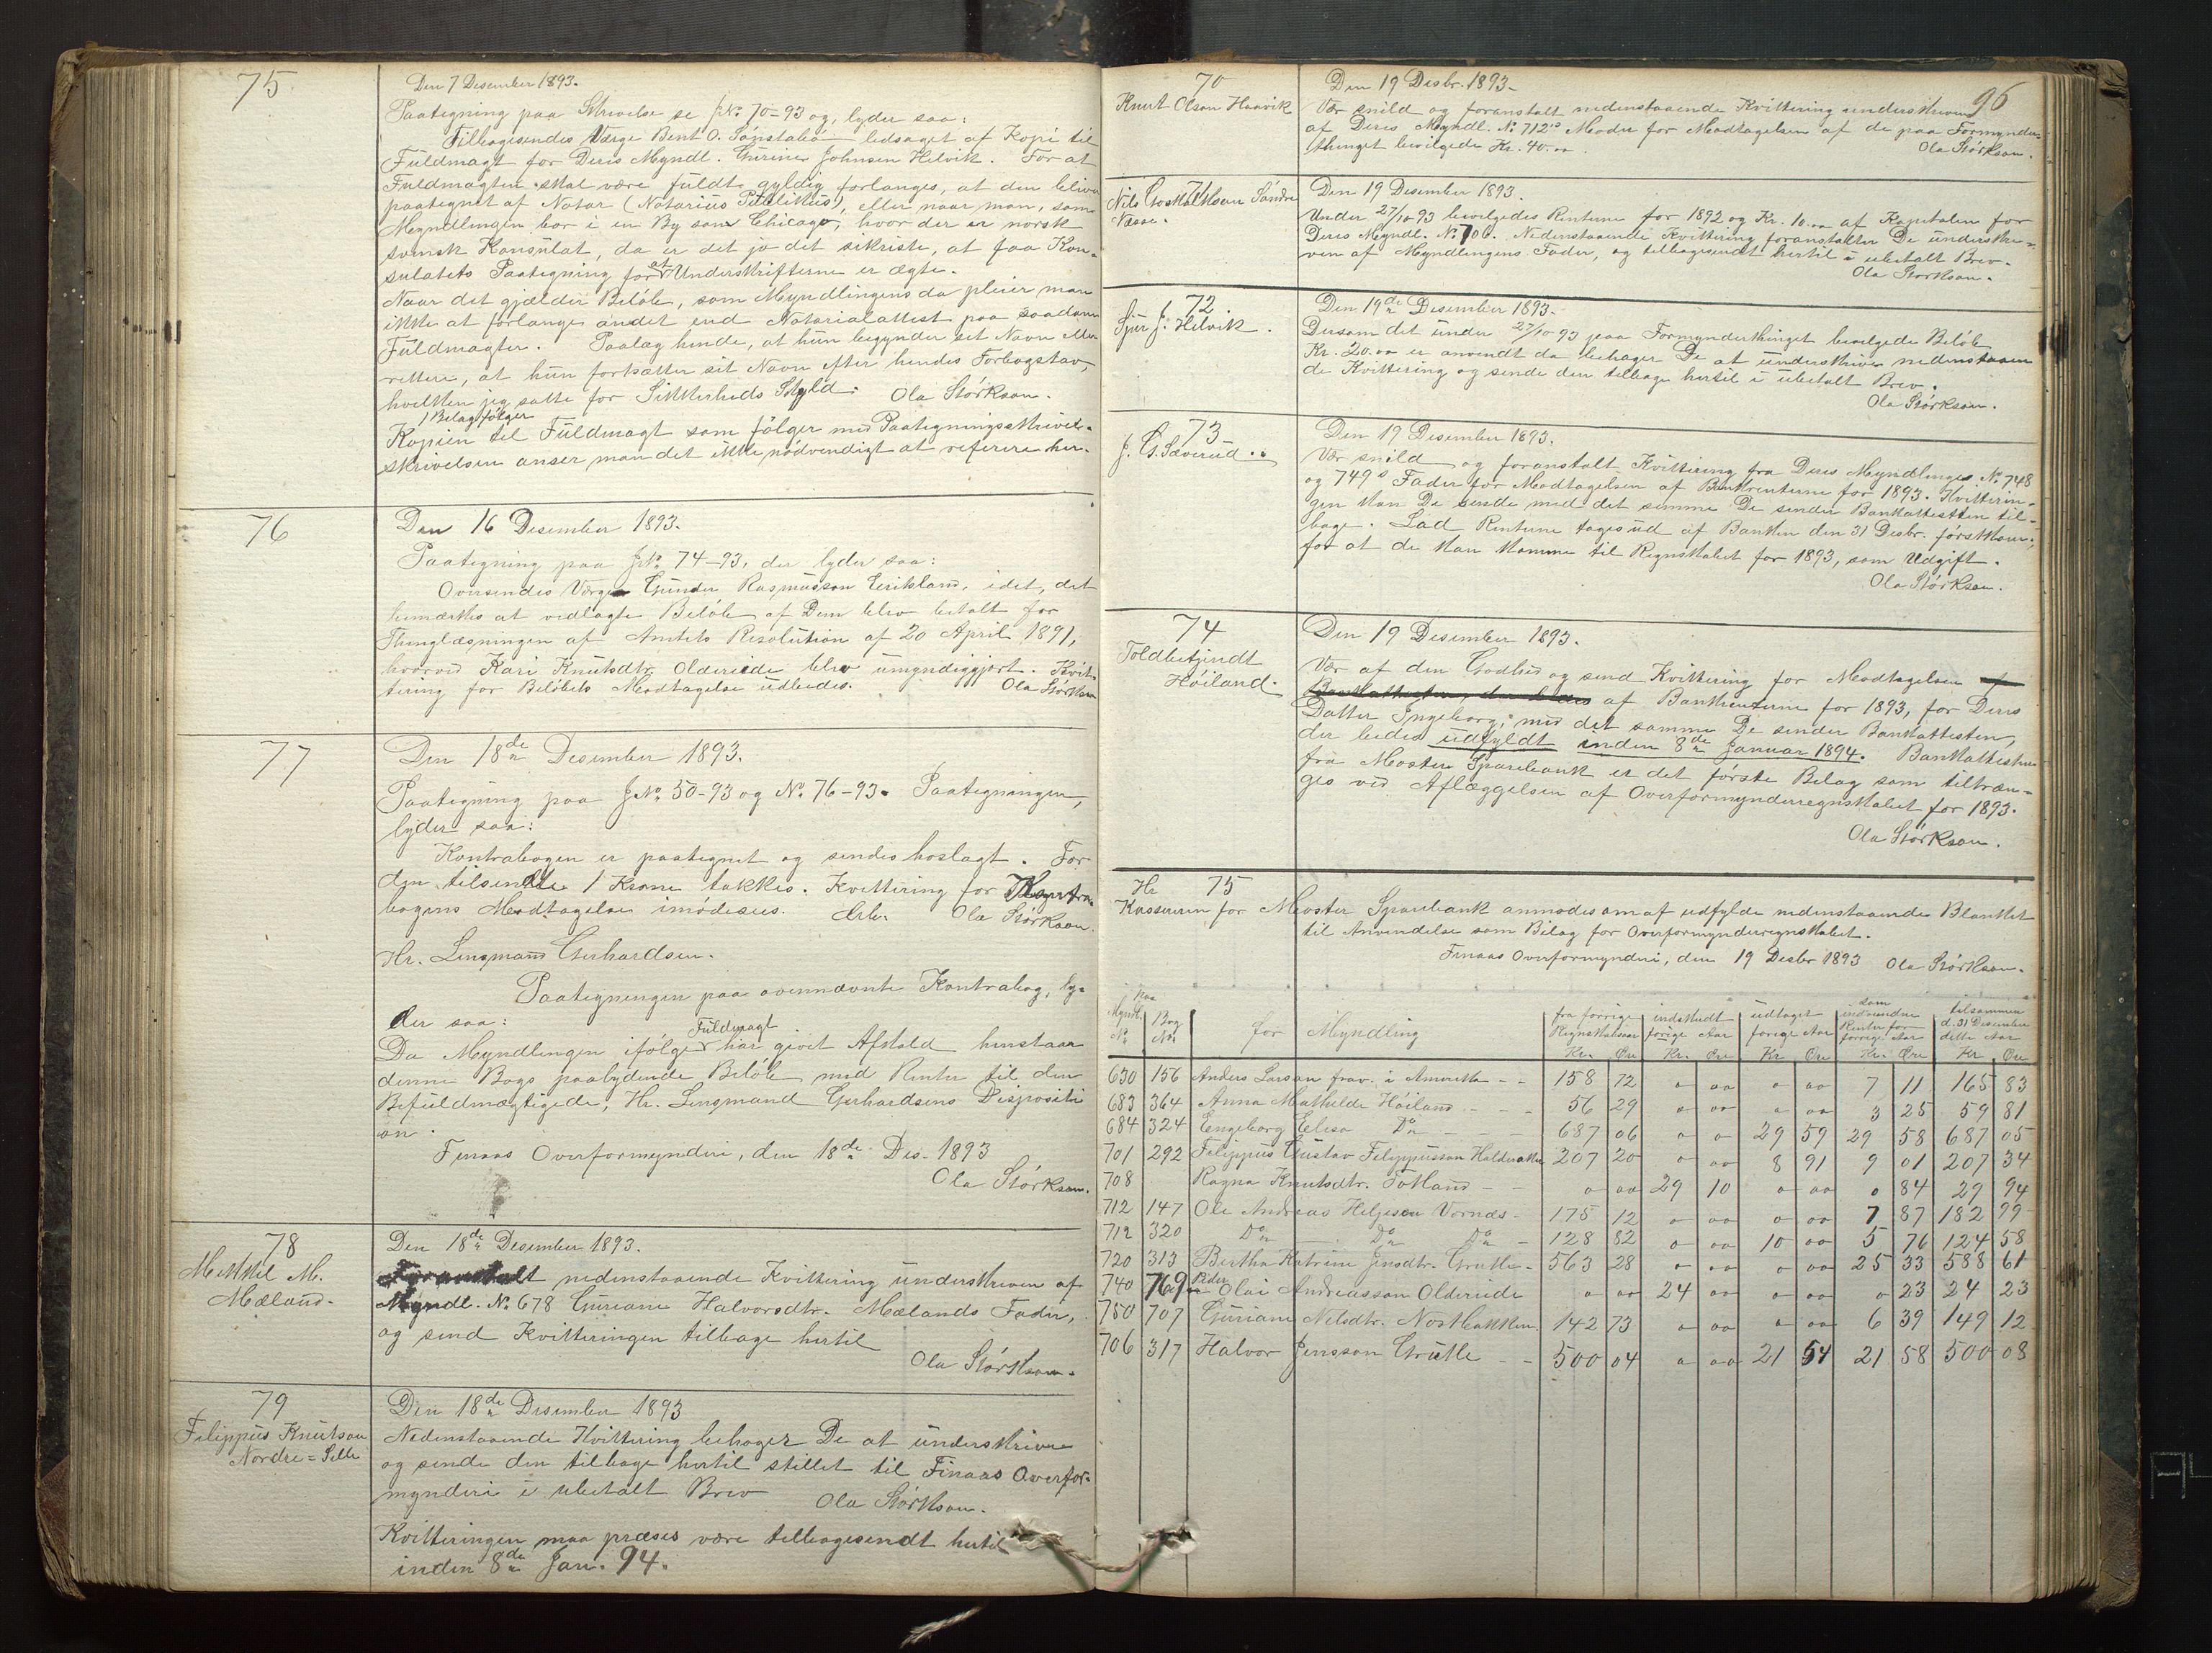 75
Den 7 Desember 1893.
Paategning paa Skrivelse se JNo. 70-93 og, lyder saa:
Tilbagesendes Værge Bent O. Sønstabø ledsaget af Kopi til
Fuldmagt for Deres Myndl. Gurine Johnsen Helvik. For at
Fuldmagten skal være fuldt gyldig forlanges, at den bliver
paategnet af Notar (Notarius Publikus), eller naar man, som
Myndlingen bor i en By som Chicago, hvor der er norsk
svensk Konsulat, da er det jo det sikriste, at faa Kon-
sulatets Paategning for at Underskrifterne er ægte.
Naar det gjælder Beløb, som Myndlingens da pleier man
ikke at forlange andet end Notarialattest paa saadan
Fuldmagter. Paalæg hende, at hun begynder sit Navn eller
rettere, at hun fortsætter sit Navn efter hendes Forbogstav,
hvilken jeg satte for Sikkerheds Skyld. Ola Størkson.
1 Bilag følger
Kopien til Fuldmagt som følger med Paategningsskrivel-
skrivelsen anser man det ikke nødvendigt at referere her.
76
Den 16 Desember 1893.
Paategning paa JNo. 74-93, der lyder saa:
Oversendes Værge Gunder Rasmusson Eeriksland, idet, det
bemærkes at vedlagte Beløb af Dem blev betalt for
Thinglæsningen af Amtets Resolution af 20 April 1891,
hvorved Kari Knutsdtr. Aldereide blev umyndiggjort. Kvit-
tering for Beløbets Modtagelse udbedes. Ola Størkson
77
Den 18de Desember 1893.
Paategning paa JNo. 50-93 og No. 76-93. Paategningen,
lyder saa:
Kontrabogen er paategnet og sendes hoslagt. For
den tilsendte 1 Krone takkes. Kvittering for Kontra-
bogens Modtagelse imødesees. Erb. Ola Størkson.
Hr. Lensmand Gerhardsen.
Paategningen paa ovennævnte Kontrabog, ly-
der saa:
Fuldmagt
Da Myndlingen ifølge har givet Afkald henstaar
denne Bogs paalydende Beløb med Renter til den
Befuldmægtigede, Hr. Lensmand Gerhardsens Dispositi
on.
Finaas Overformynderi, den 18de Des. 1893
Ola Størkson.
78
Mikkel M.
Mæland.
Den 18de Desember 1893.
Foranstalt nedenstaaende Kvittering underskreven af
Myndl. No. 678 Guriane Halvorsdtr. Mælands Fader,
og send Kvitteringen tilbage hertil
Ola Størkson.
79
Filippus Knutson
Nordre=Selle
Den 18de Desember 1893
Nedenstaaende Kvittering behager De at underskrive
og sende den tilbage hertil stillet til Finaas Overfor-
mynderi i ubetalt Brev Ola Størkson.
Kvitteringen maa præses være tilbagesendt hertil
inden 8de Jan. 94.
96
70
Knut Olson Haavik
Den 19 Desbr. 1893.
Vær snild og foranstalt nedenstaaende Kvittering underskreven
af Deres Myndl. No. 712s Moder for Modtagelsen af de paa Formynder-
thinget bevilgede Kr. 40.00. Ola Størkson.
71
Nils Søndre
Næse.
Den 19 Desember 1893.
Under 27/10 93 bevilgedes Renterne for 1892 og Kr. 10.00 af Kapitalen for
Deres Myndl. No. 700. Nedenstaaende Kvittering foranstalter De underskre-
ven af Myndlingens Fader, og tilbagesendt hertil i ubetalt Brev.
Ola Størkson.
72.
Sjur J. Helvik.
Den 19de Desember 1893.
Dersom det under 27/10 93 paa Formynderthinget bevilgede Beløb
Kr. 20.00 er anvendt da behager De at underskrive nedenstaaen
de Kvittering og sende den tilbage hertil i ubetalt Brev.
Ola Størkson.
73
J. G. Sæverud.
Den 19 Desember 1893.
Vær snild og foranstalt Kvittering fra Deres Myndlinges No. 748
og 749s Fader for Modtagelsen af Bankrenterne for 1893. Kvitterin-
gen kan De sende med det samme De sender Bankattesten til-
bage. Lad Renterne tages ud af Banken den 31 Desbr. førstkom.,
for at de kan komme til Regnskabet for 1893, som Udgift.
Ola Størkson.
74
Toldbetjendt
Høiland.
Den 19 Desember 1893.
Vær af den Godhed og send Kvittering for Modtagelsen
af Bankrenterne for 1893, for Deres
Datter Ingeborg, med det samme De sender Bankattesten,
der bedes udfyldt inden 8de Januar 1894. Bankattesten
fra Moster Sparebank er det første Bilag som tiltræn-
ges ved Aflæggelsen af Overformynderregnskabet for 1893.
Ola Størkson.
75
Hr
Kassereren for Moster Sparebank anmodes om at udfylde nedenstaaende Blanket
til Anvendelse som Bilag for Overformynderregnskabet.
Finaas Overformynderi, den 19 Desbr 1893 Ola Størkson.
Myndl. No. | paa Bog No. | for Myndling | fra forrige Regnskabsaar Kr. Øre | indskudt forige Aar Kr. Øre | udtaget forige Aar Kr Øre | som indvundne Renter for forrige Aar Kr. Øre | tilsammen d. 31 Desember dette Aar Kr Øre
630 156 Anders Larson frav. i Amerika - - 158 72 0 00 0 00 7 11 165 83
683 364 Anna Mathilde Høiland - - - 56 29 0 00 0 00 3 25 59 81
684 324 Engeborg Elisa Do - - - 687 06 0 0 29 59 29 58 687 05
701 292 Filippus Gustav Filippusson Halderaker 207 20 0 00 8 91 9 01 207 34
708 Ragna Knutsdtr. Totland - - 0 00 29 10 0 00 0 84 29 94
712 147 Ole Andreas Helgeson Vornæs - 175 12 0 00 0 00 7 87 182 99
712 320 Do Do Do - 128 82 0 00 10 00 5 76 124 58
720 313 Bertha Katrine Jensdtr. Grutle - 563 28 0 00 0 00 25 33 588 61
740 769 Peder Olai Andreasson Oldereide 0 00 24 00 0 00 0 23 24 23
750 707 Guriane Nilsdtr. Nostbakken. 142 73 0 00 0 00 6 39 149 12
706 317 Halvor Jensson Grutle - - 500 04 0 00 21 54 21 58 500 08